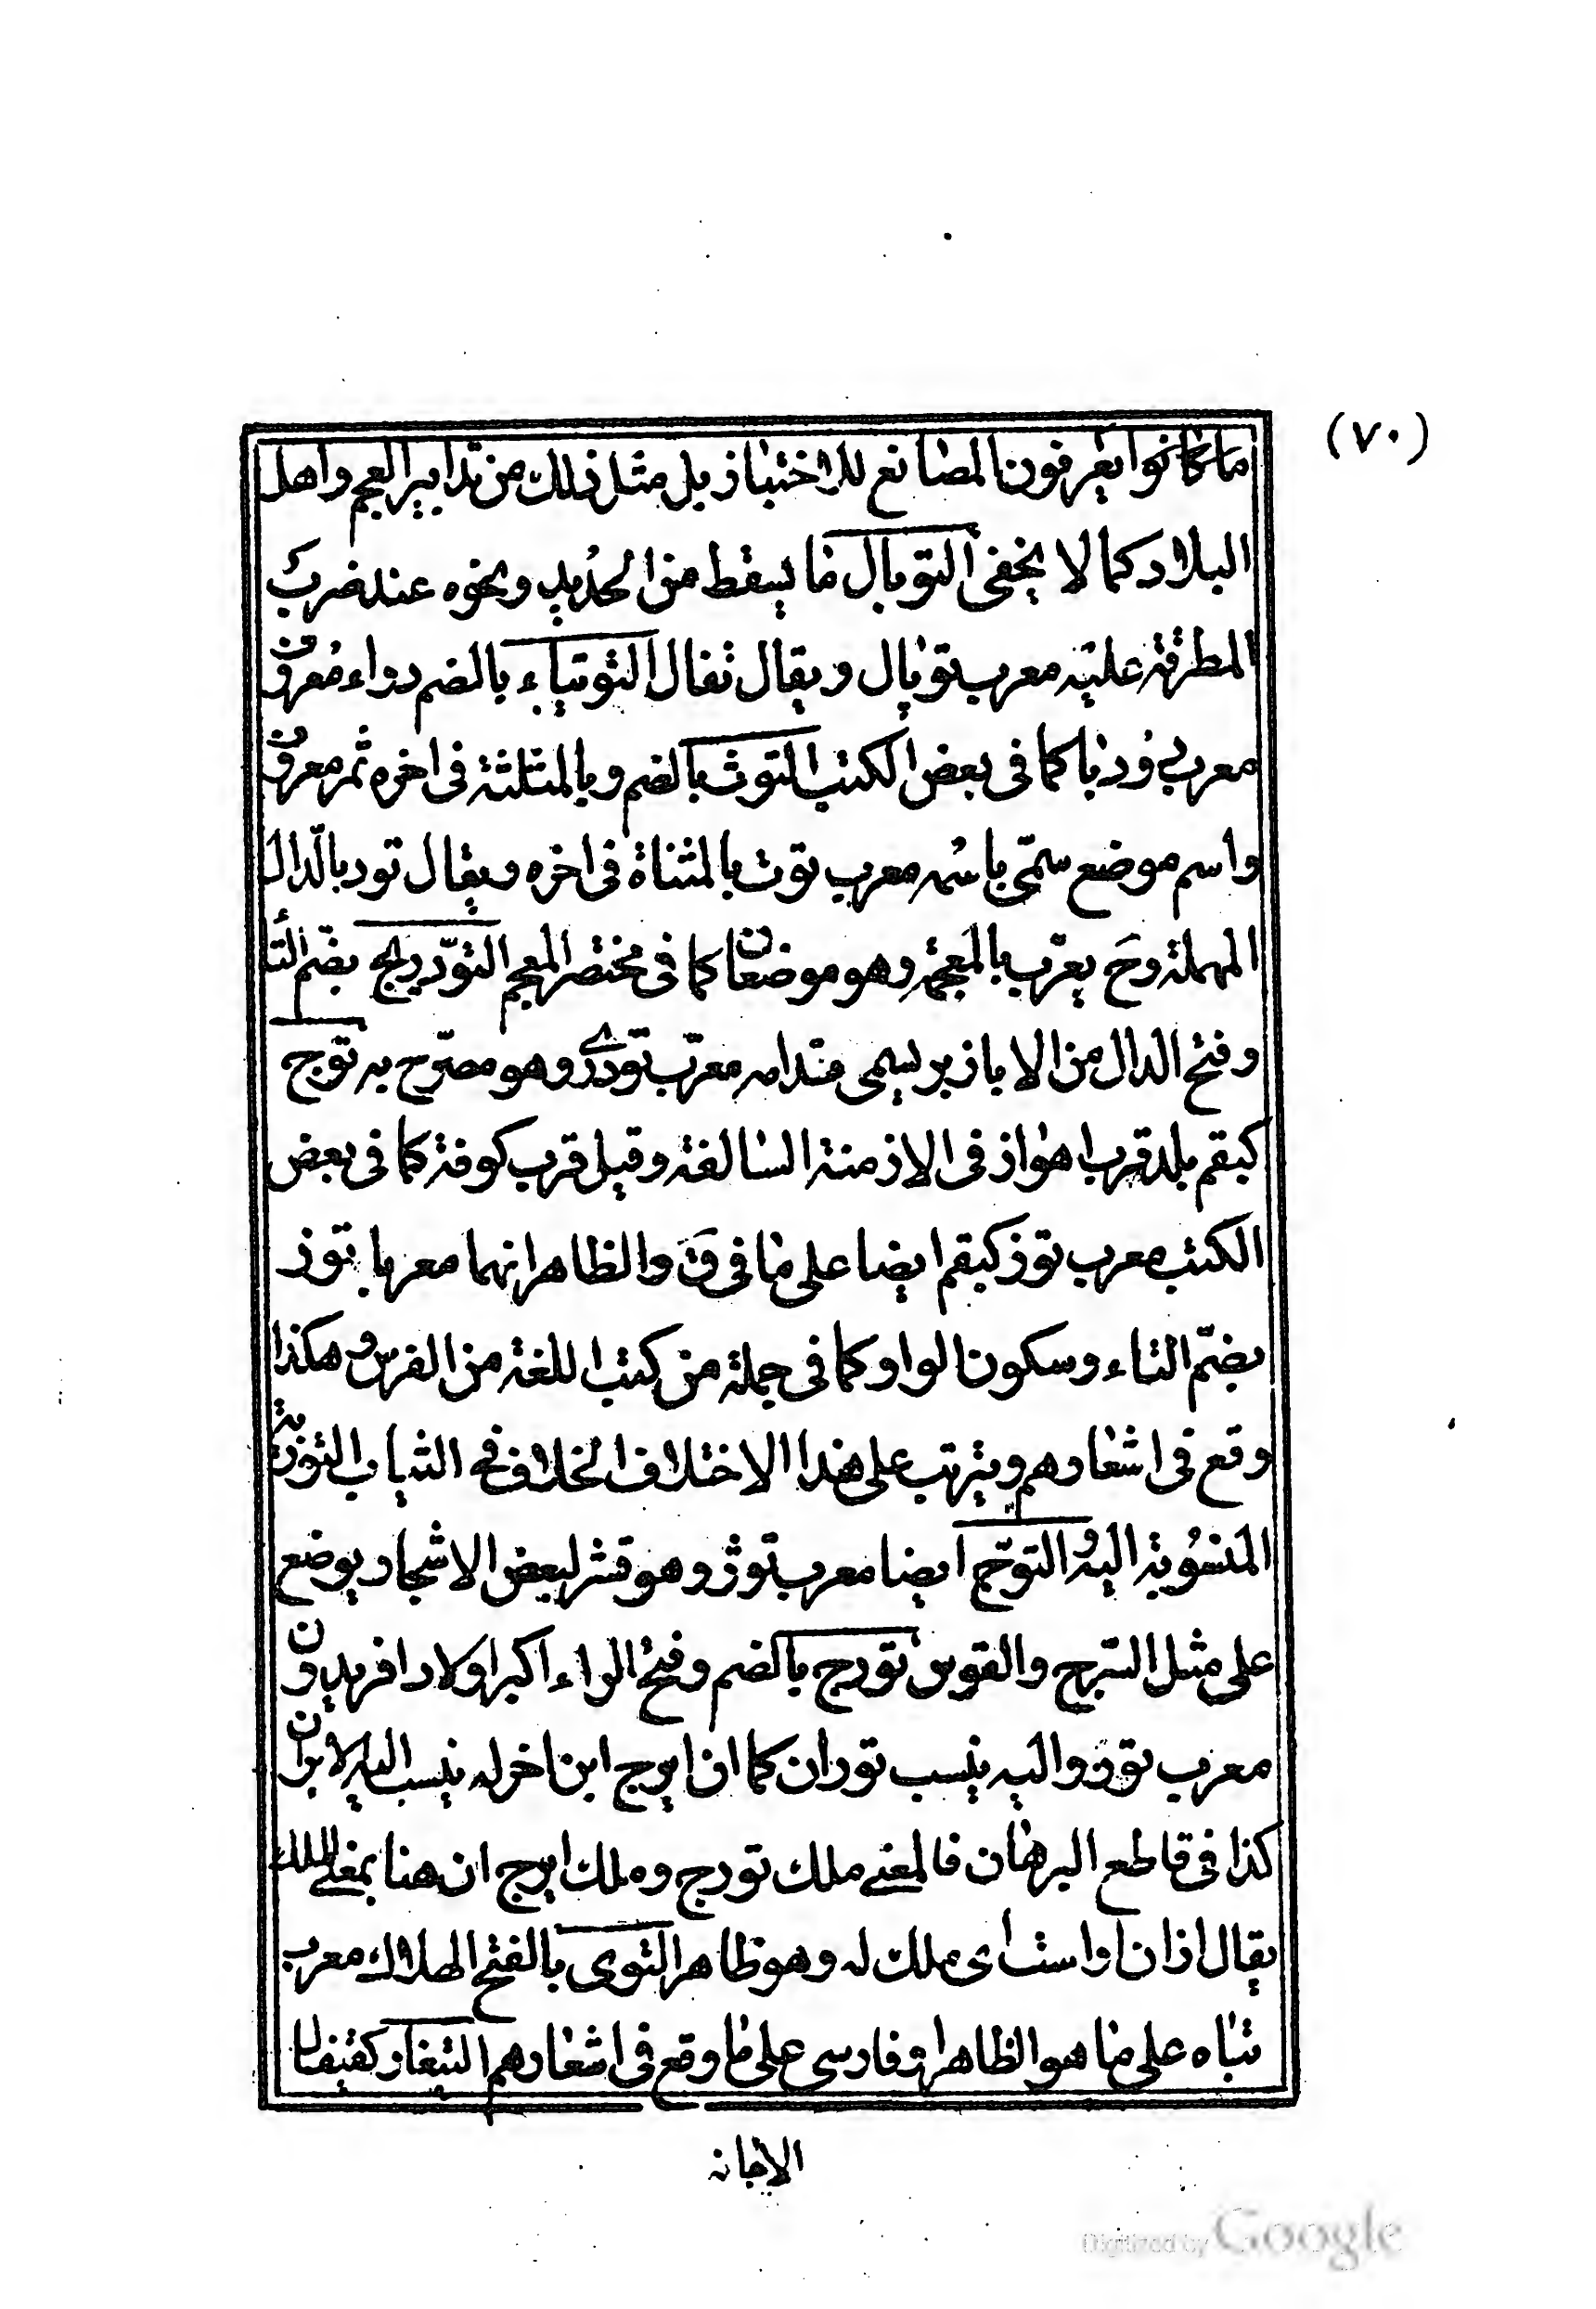 (٧٠)
ما كانوا يعرفون المصانع للاختباز بل مثل ذلك من تدابير العجم واهل
البلاد كما لا يخفى التوبال ما يسقط من الحديد ونحوه عند ضرب
المطرقة عليه معرب توپال ويقال تفال التوتياء بالضم دواء معروف
معرب دودبا كما فى بعض الكتب التوث بالضم وبالمثلثة فى اخره ثمر معروف
واسم موضع سمّى باسمه معرب توت بالمثناة فى اخره ويقال تود بالدّال
المهملة وحَ يعرّب بالمعجمة وهو موضعان كما فى مختصر المعجم التّودريج بضّم التّاء
وفتح الدال من الابازير يسمى قدامه معرّب تودرى وهو مصرّح به توج
كبقم بلد قرب اهواز فى الازمنة السالفة وقيل قرب كوفة كما فى بعض
الكتب معرب توز كبقم ايضا على ما فى قَ والظاهر انهما معربا توز
بضّم التاء وسكون الواو كما فى جملة من كتب اللغة من الفرس وهكذا
وقع فى اشعارهم ويترتب على هذا الاختلاف الخلاف فى الثياب التوزية
المنسوبة اليه والتوّج ايضا معرب توژ وهو قشر لبعض الاشجار يوضع
على مثل السّرج والقوس تورج بالضم وفتح الراء اكبر اولاد افريدون
معرب تور واليه ينسب توران كما ان ايرج ابنا اخر له ينسب اليه الايران
كذا فى قاطع البرهان فالمعنى ملك تورج وملك ايرج ان هنا بمعنى الملك
يقال اذان واستاى ملك له وهو ظاهر التوى بالفتح الهلاك معرب
تباه على ما هو الظاهر انه فارسى على ما وقع فى اشعارهم التيغار كقيفال
الاجانه
Digitized by Google